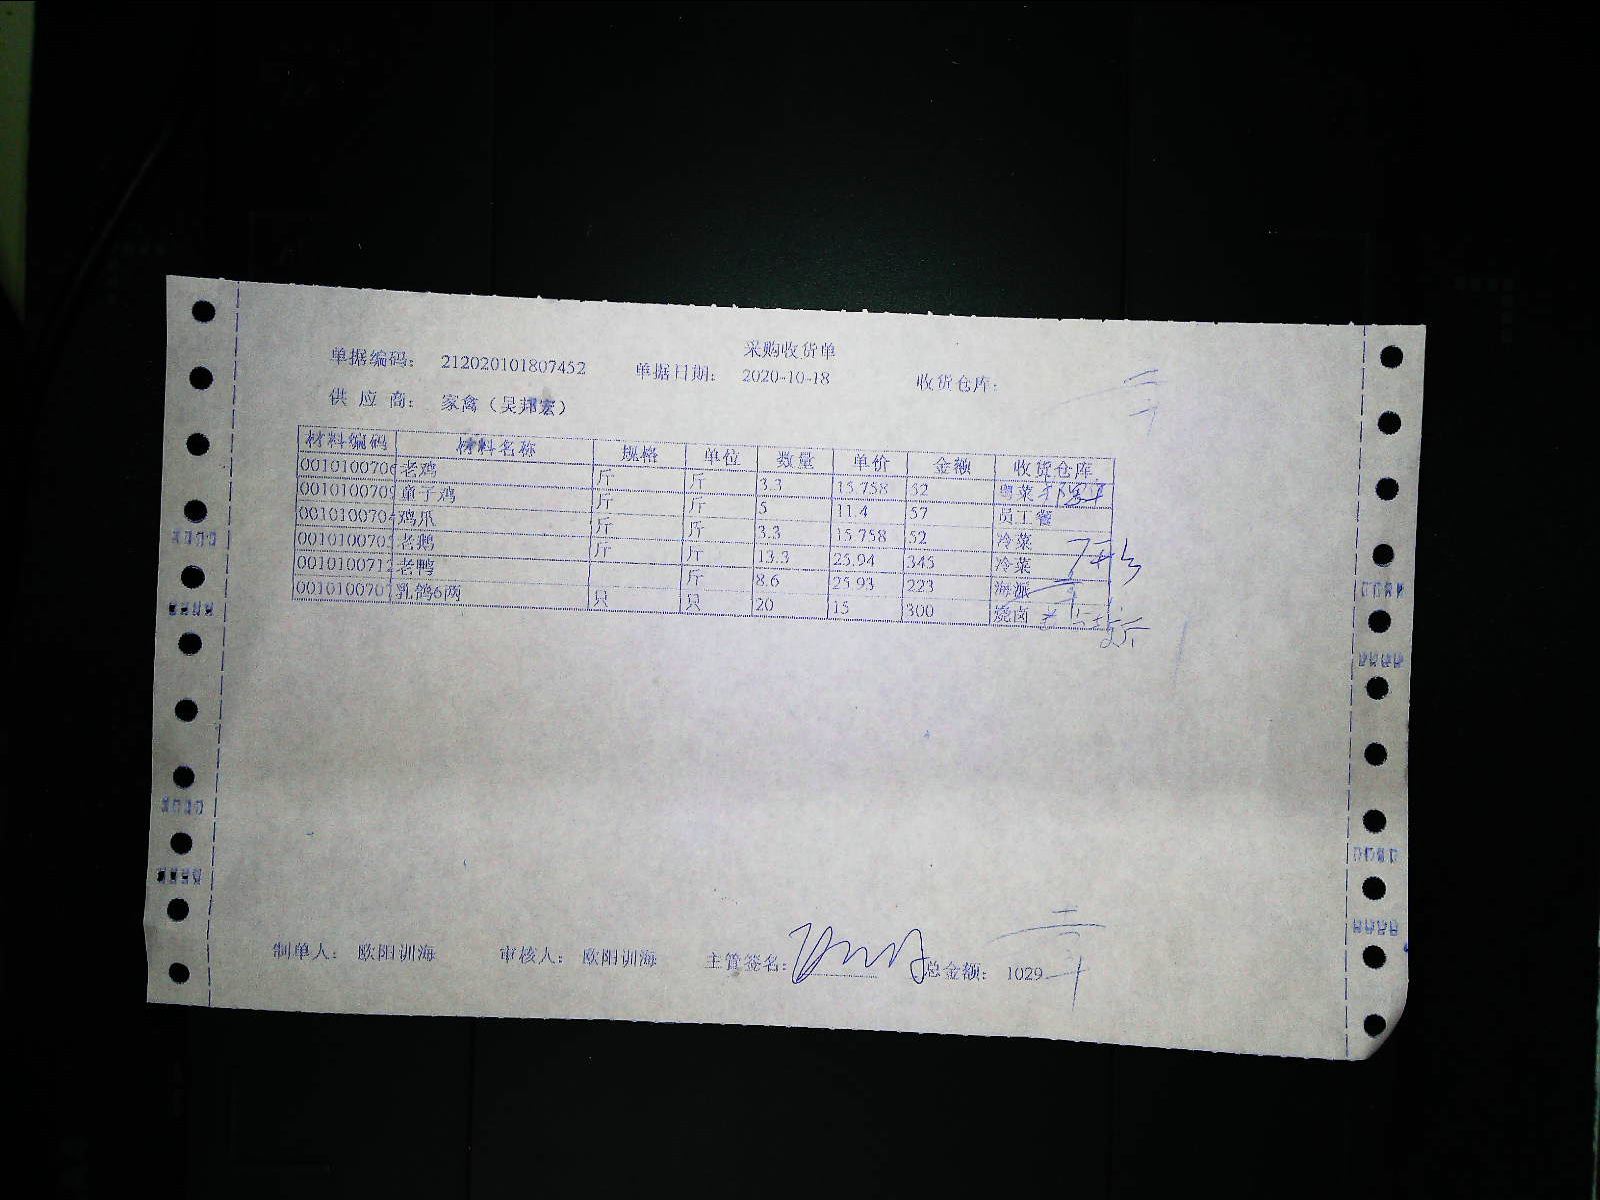 采购收货单
单据编码： 212020101807452 单据日期： 2020-10-18 收货仓库：
供 应 商： 家禽（吴邦宏）
材料编码 材料名称 规格 单位 数量 单价 金额 收货仓库
0010100706 老鸡 斤 斤 3.3 15.758 52 粤菜
0010100709 童子鸡 斤 斤 5 11.4 57 员工餐
001010070 鸡爪 斤 斤 3.3 15.758 52 冷菜
001010070 老鹅 斤 斤 13.3 25.94 345 冷菜
0010100712 老鸭 斤 8.6 25.93 223 海派
001010070 乳鸽6两 只 只 20 15 300 烧卤
制单人： 欧阳训海 审核人： 欧阳训海 主管签名： 总金额： 1029